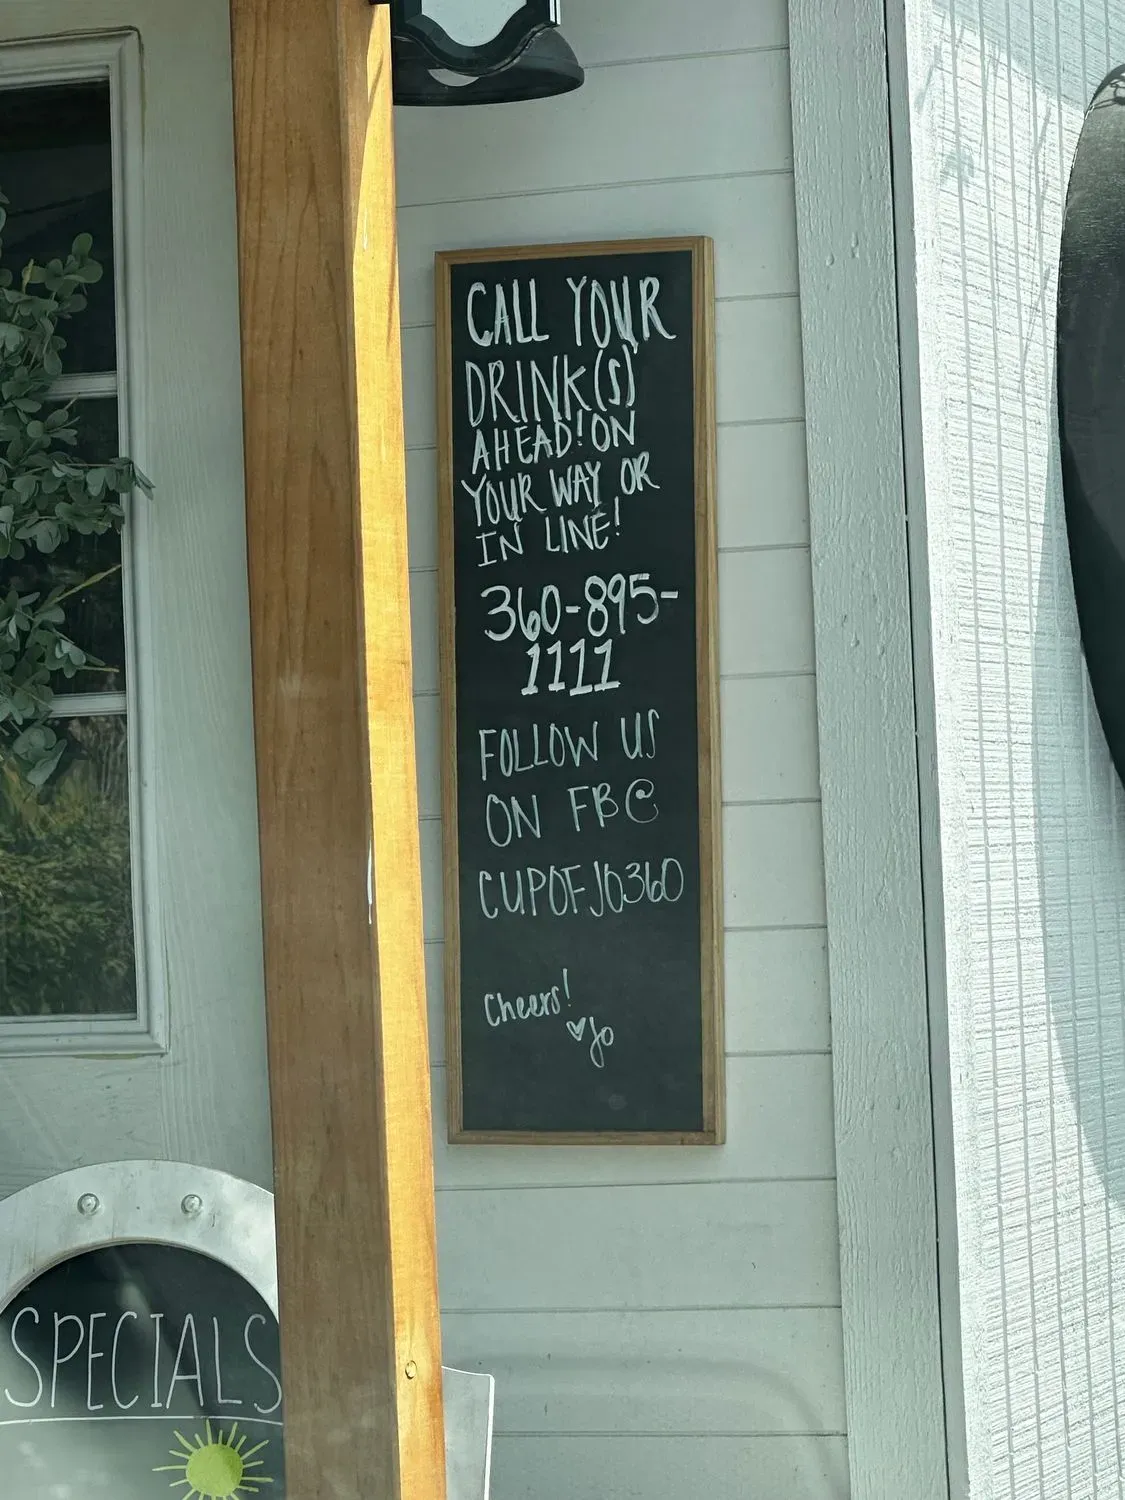 CALL YOUR
DRINK(S)
AHEAD! ON
YOUR WAY OR
IN LINE!
360-895-
1111
FOLLOW US
ON FB@
CUPOFJO360
Cheers!
♥Jo
SPECIALS